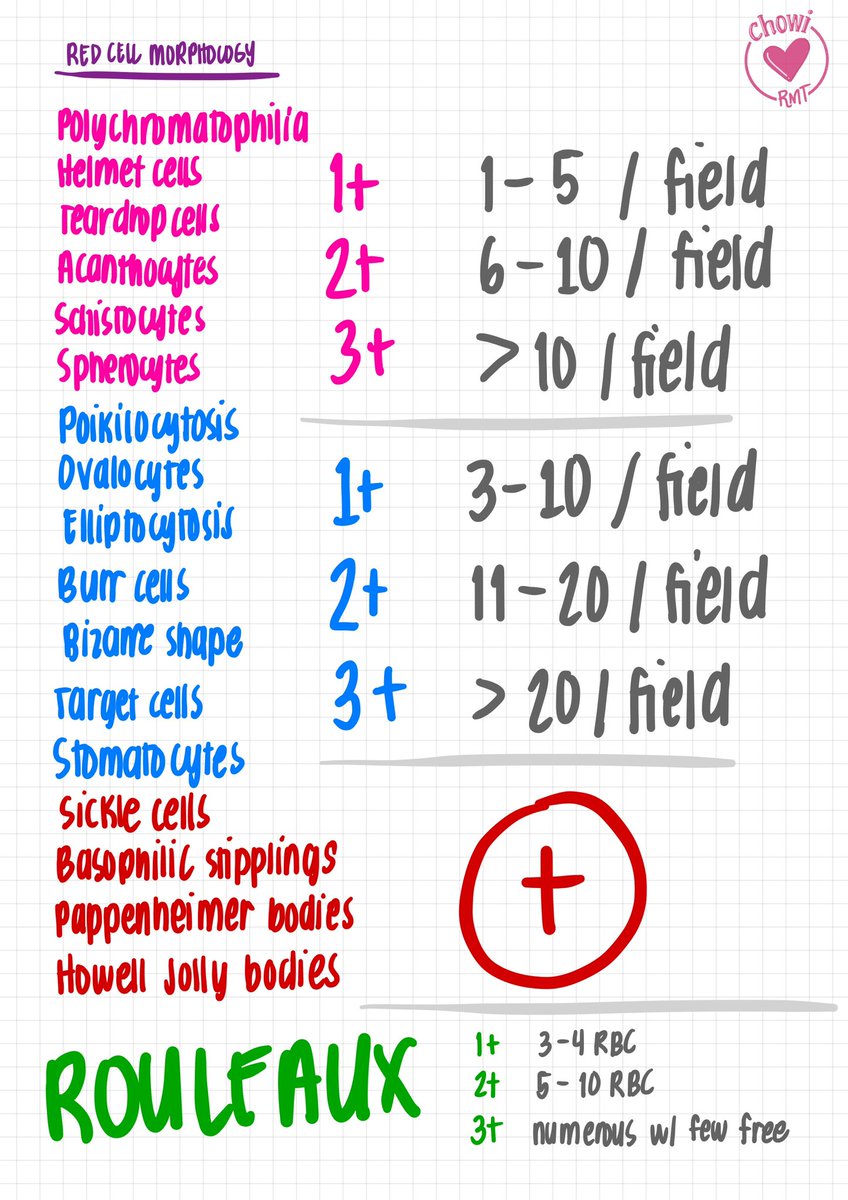 RED CELL MORPHOLOGY
chowi
RMT
Polychromatophilia
Helmet cells
Teardrop cells
Acanthocytes
Schistocytes
Spherocytes
1+ 1-5 / field
2+ 6-10 / field
3+ >10 / field
Poikilocytosis
Ovalocytes
Elliptocytosis
Burr cells
Bizarre shape
Target cells
Stomatocytes
1+ 3-10 / field
2+ 11-20 / field
3+ >20 / field
Sickle cells
Basophilic stipplings
Pappenheimer bodies
Howell Jolly bodies
+
ROULEAUX
1+ 3-4 RBC
2+ 5-10 RBC
3+ numerous w/ few free